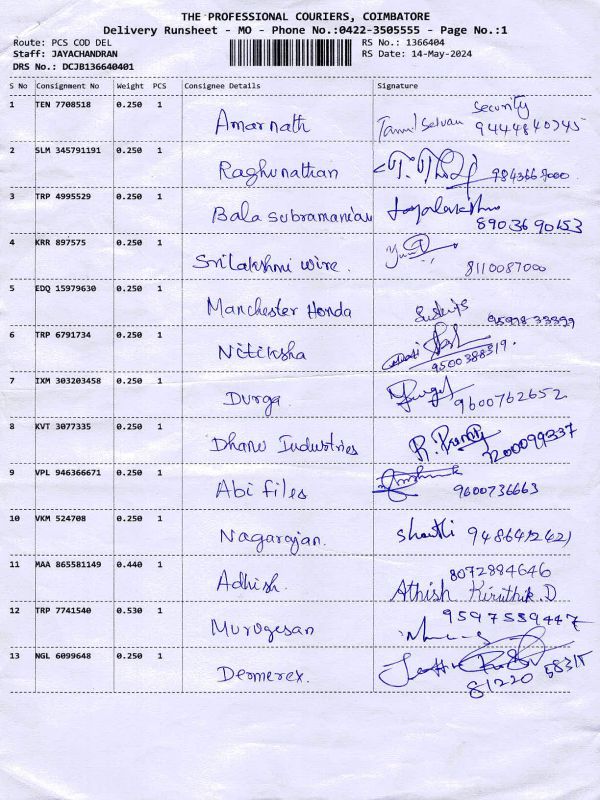 THE PROFESSIONAL COURIERS, COIMBATORE
Delivery Runsheet - MO - Phone No.:0422-3505555 - Page No.:1
Route: PCS COD DEL RS No.: 1366404
Staff: JAYACHANDRAN RS Date: 14-May-2024
DRS No.: DCJB136640401
S No Consignment No Weight PCS Consignee Details Signature
1 TEN 7708518 0.250 1 Amarnath Tamil Selvan Security
9444840745
2 SLM 345791191 0.250 1 Raghunathan 9843668000
3 TRP 4995529 0.250 1 Bala subramanian Jayalakshmi
8903690153
4 KRR 897575 0.250 1 Srilakshmi wire.
8110087000
5 EDQ 15979630 0.250 1 Manchester Honda
95978 33399
6 TRP 6791734 0.250 1 Nitiksha
9500388319.
7 IXM 303203458 0.250 1 Durga. 9600762652
8 KVT 3077335 0.250 1 Dhanu Industries
7200099337
9 VPL 946366671 0.250 1 Abi files
9600736663
10 VKM 524708 0.250 1 Nagarajan. Shanthi
11 MAA 865581149 0.440 1 Adhish 8072884646
Athish Kiruthik.D
12 TRP 7741540 0.530 1 Murugesan 9597559447
13 NGL 6099648 0.250 1 Dermerex.
81220 58315